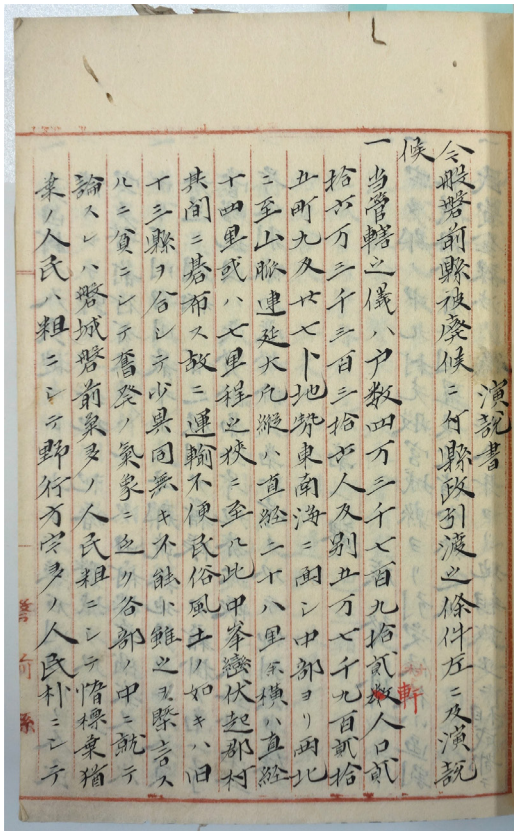 演説書
今般磐前縣被廃候ニ付縣政引渡之條件左ニ及演説
候
一当管轄之儀ハ戸数四万三千七百九拾貳軒人口貳
拾六万三千三百三拾六人反別五万七千九百貳拾
五町九反廿七卜地勢東南海ニ面シ中部ヨリ西北
ニ至山脈連延大凡縦ハ直経三十八里余横ハ直経
十四里或ハ七里程之狭ニ至ル此中峯巒伏起郡村
其間ニ碁布ス故ニ運輸不便民俗風土ノ如キハ旧
十三縣ヲ合シテ少異同無キ不能ト雖之ヲ概言ス
ルニ貧ニシテ奮発ノ氣象ニ乏シ各部ノ中ニ就テ
論スレハ磐城磐前菊多ノ人民粗ニシテ惰標棄猶
葉ノ人民ハ粗ニシテ野行方宇多ノ人民朴ニシテ
磐前縣